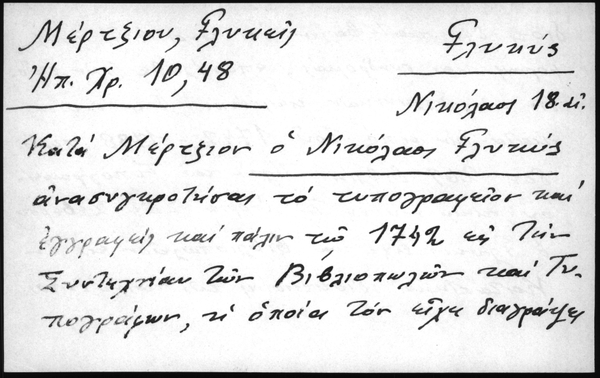 Μέρτζιου, Γλυκεῖς
Γλυκύς
Ἠπ. Χρ. 10, 48
Νικόλαος 18. αἰ.
Κατά Μέρτζιον ὁ Νικόλαος Γλυκύς
ἀνασυγκροτήσας τό τυπογραφεῖον καί
ἐγγραφείς καί πάλιν τῷ 1742 εἰς τήν
Συντεχνίαν τῶν Βιβλιοπωλῶν καί Τυ-
πογράφων, ἡ ὁποία τόν εἶχε διαγράψει